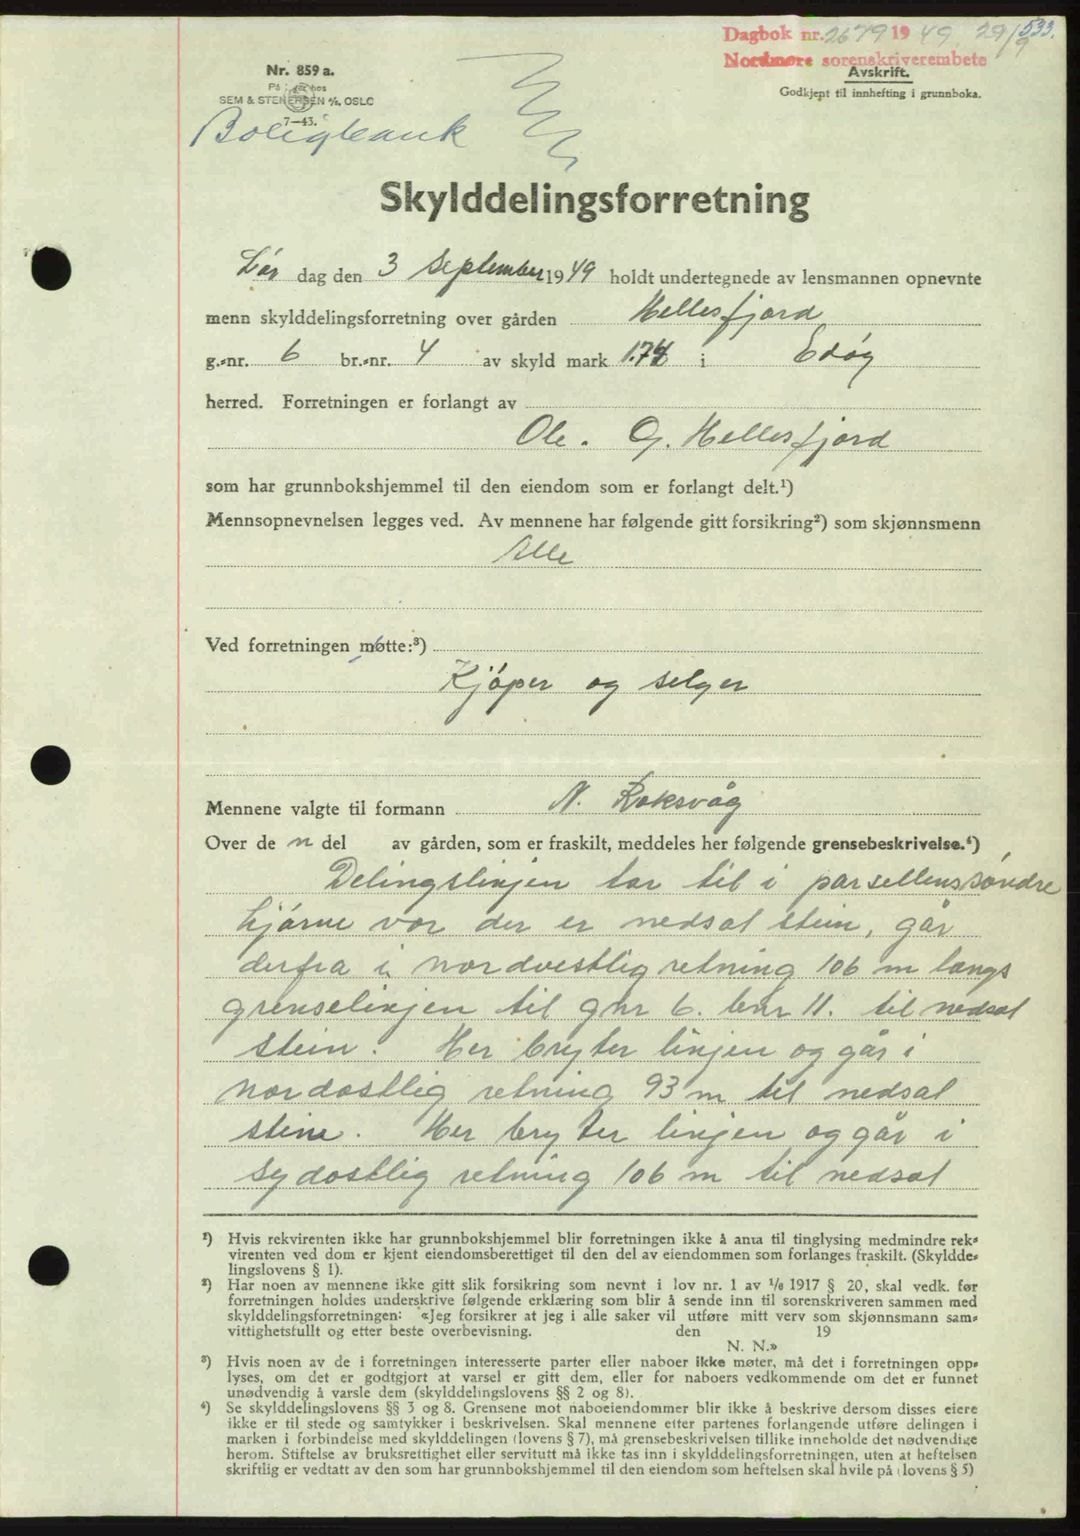 533.
Dagbok nr. 2679 1949 29/9
Nordmøre sorenskriverembete
Nr. 859 a.
Avskrift.
SEM & STENERSEN A/S, OSLO
Godkjent til innhefting i grunnboka.
7—43.
Boligbank
Skylddelingsforretning
Lør dag den 3 September 1949 holdt undertegnede av lensmannen opnevnte
menn skylddelingsforretning over gården Hellesfjord
g.-nr. 6 br.-nr. 4 av skyld mark 1.74 i Edøy
herred. Forretningen er forlangt av
Ole. G. Hellesfjord
som har grunnbokshjemmel til den eiendom som er forlangt delt.¹)
Mennsopnevnelsen legges ved. Av mennene har følgende gitt forsikring²) som skjønnsmenn
Alle
Ved forretningen møtte:³)
Kjøper og selger
Mennene valgte til formann N. Roksvåg
Over de n del av gården, som er fraskilt, meddeles her følgende grensebeskrivelse.⁴)
Delingslinjen tar til i parsellens søndre
hjørne vor der er nedsat stein, går
derfra i nordvestlig retning 106 m langs
grenselinjen til gnr 6. bnr 11. til nedsat
stein. Her bryter linjen og går i
nordøstlig retning 93 m til nedsat
stine. Her bryter linjen og går i
sydøstlig retning 106 m til nedsat
¹) Hvis rekvirenten ikke har grunnbokshjemmel blir forretningen ikke å anta til tinglysing medmindre rek-
virenten ved dom er kjent eiendomsberettiget til den del av eiendommen som forlanges fraskilt. (Skyldde-
lingslovens § 1).
²) Har noen av mennene ikke gitt slik forsikring som nevnt i lov nr. 1 av 1/6 1917 § 20, skal vedk. før
forretningen holdes underskrive følgende erklæring som blir å sende inn til sorenskriveren sammen med
skylddelingsforretningen: «Jeg forsikrer at jeg i alle saker vil utføre mitt verv som skjønnsmann sam-
vittighetsfullt og etter beste overbevisning. den 19
N. N.»
³) Hvis noen av de i forretningen interesserte parter eller naboer ikke møter, må det i forretningen opp-
lyses, om det er godtgjort at varsel er gitt dem, eller for naboers vedkommende om det er funnet
unødvendig å varsle dem (skylddelingslovens §§ 2 og 8).
⁴) Se skylddelingslovens §§ 3 og 8. Grensene mot naboeiendommer blir ikke å beskrive dersom disses eiere
ikke er til stede og samtykker i beskrivelsen. Skal mennene etter partenes forlangende utføre delingen i
marken i forbindelse med skylddelingen (lovens § 7), må grensebeskrivelsen tillike inneholde det nødvendige
herom. Stiftelse av bruksrettighet eller servitutt må ikke tas inn i skylddelingsforretningen, uten at heftelsen
skriftlig er vedtatt av den som har grunnbokshjemmel til den eiendom som heftelsen skal hvile på (lovens § 5)